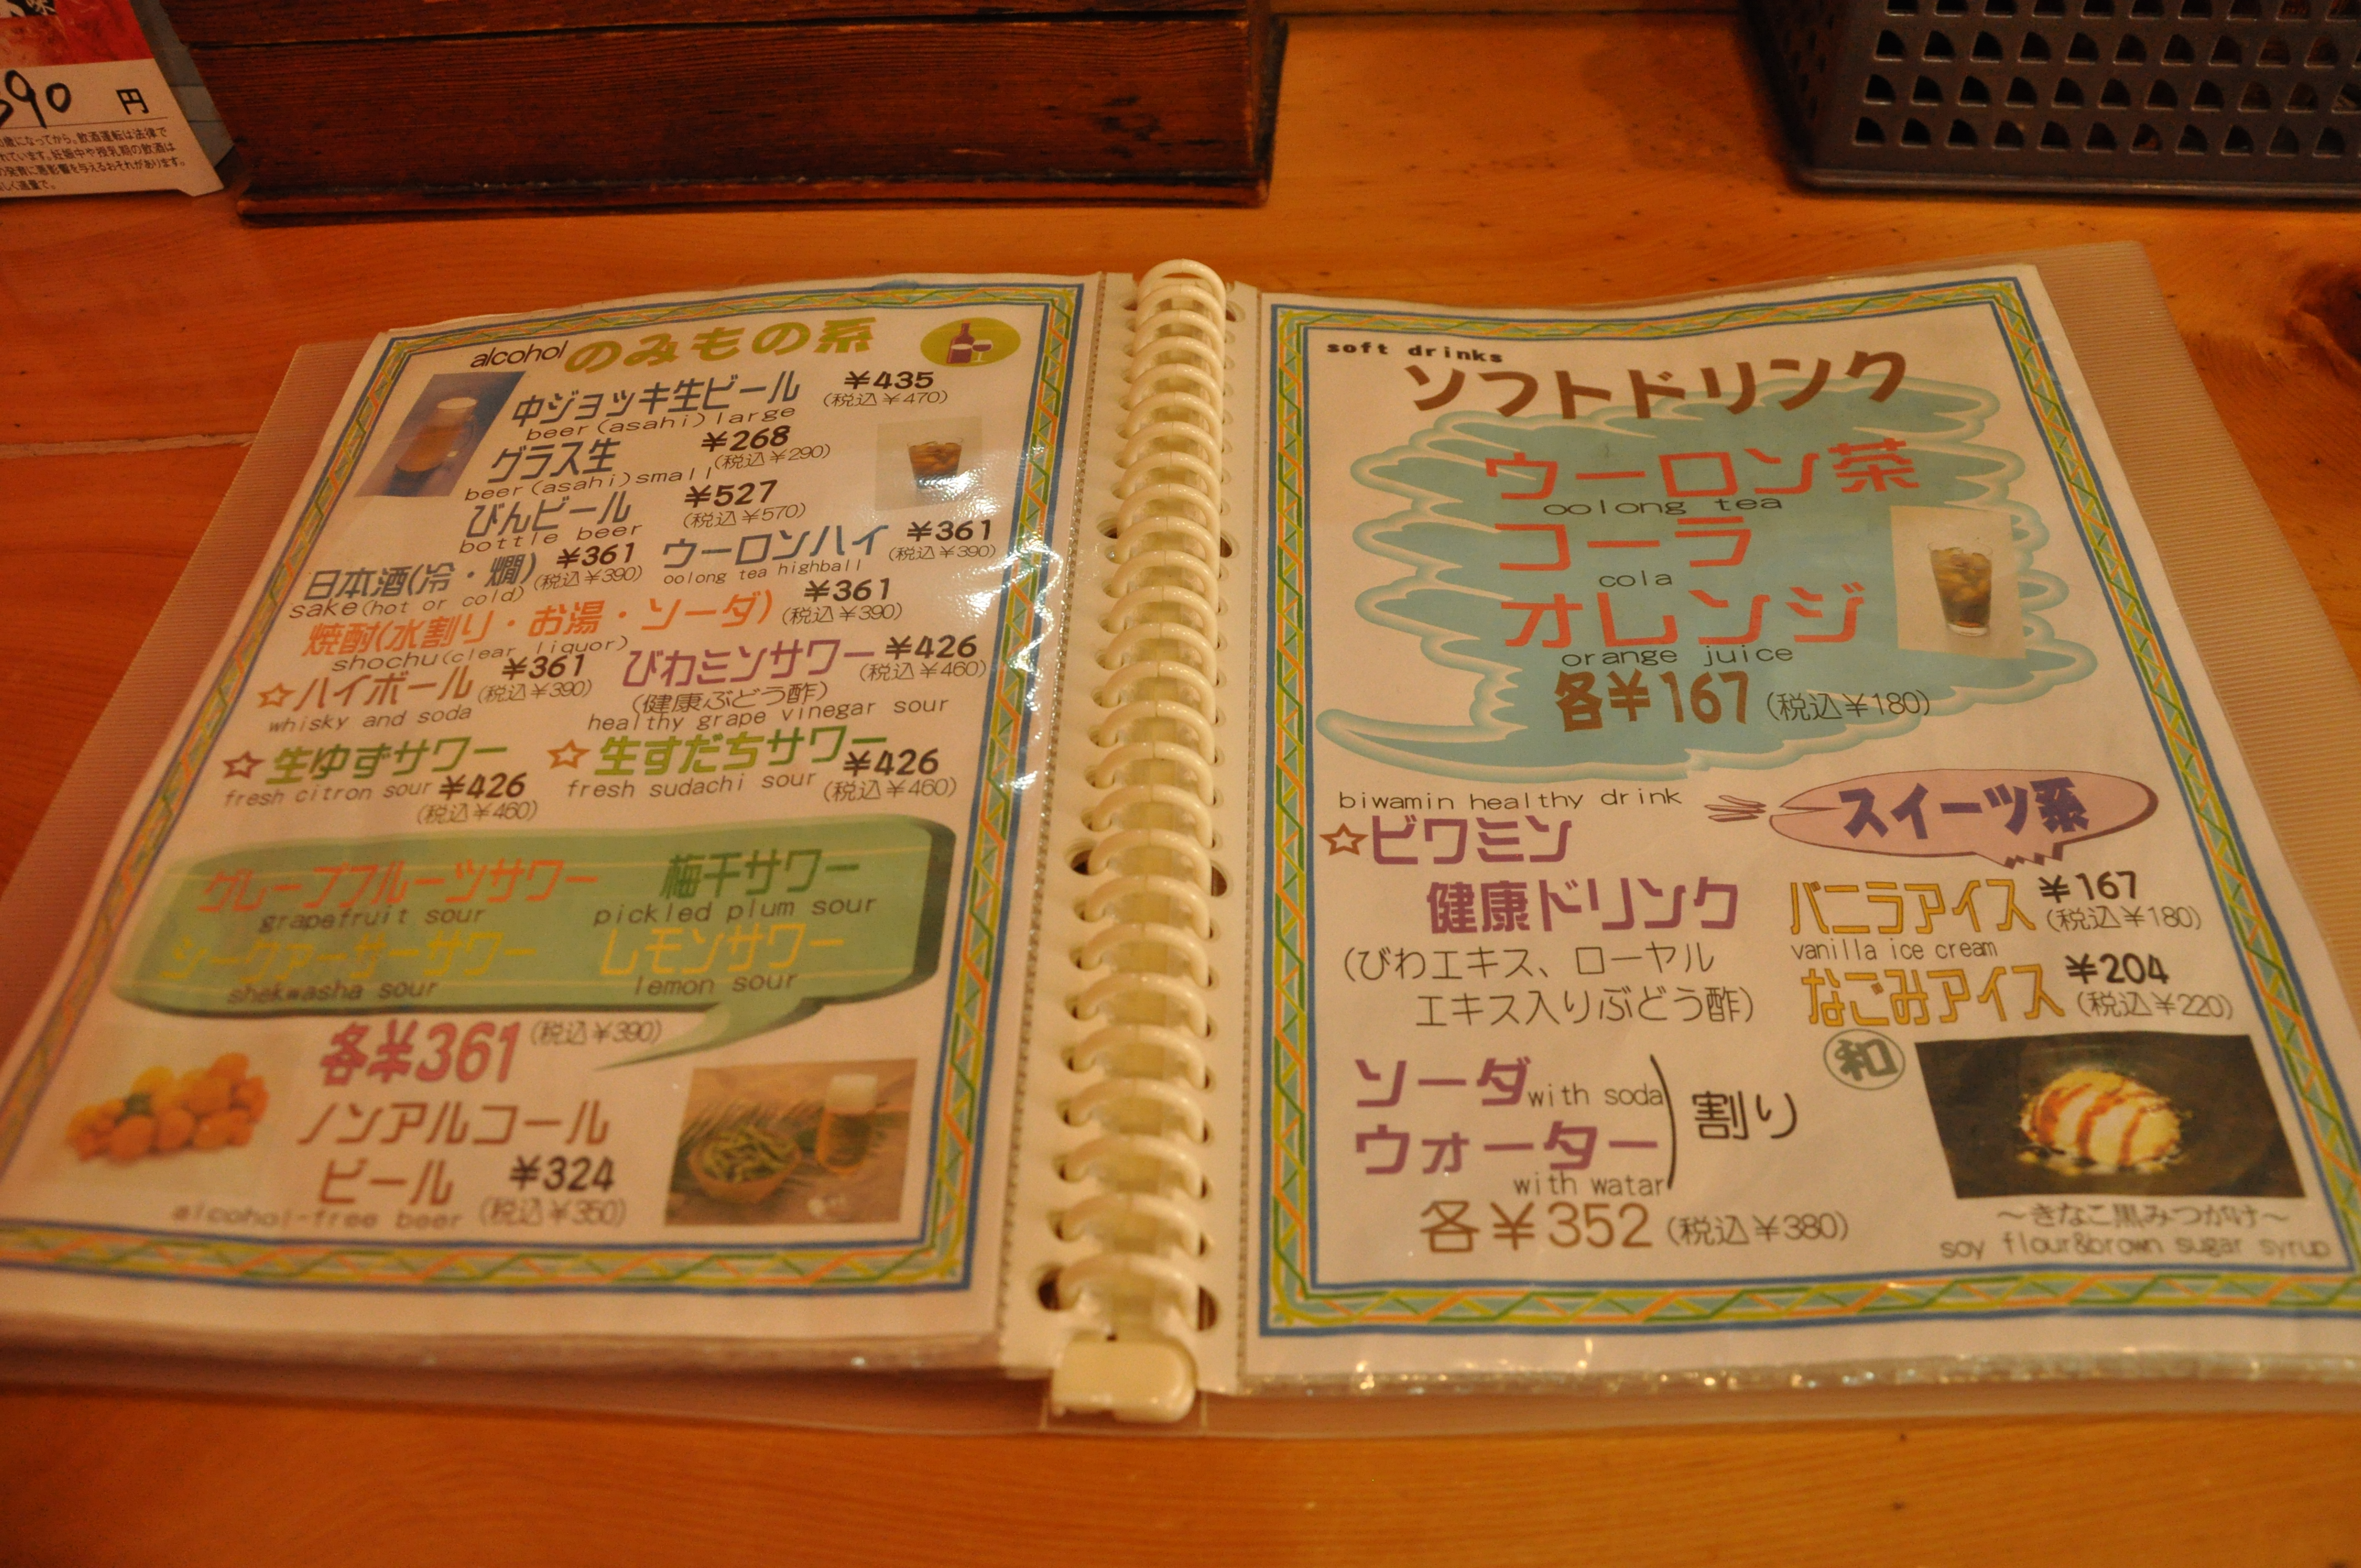 390 円
歳になってから。飲酒運転は法律で
れています。妊娠中や授乳期の飲酒は
の発育に悪影響を与えるおそれがあります。
しく適量で。
alcohol のみもの系
中ジョッキ生ビール ¥435
(税込¥470)
beer(asahi)large
グラス生 ¥268
(税込¥290)
beer(asahi)small
びんビール ¥527
(税込¥570)
bottle beer
日本酒(冷・燗) ¥361
(税込¥390)
sake(hot or cold)
ウーロンハイ ¥361
(税込¥390)
oolong tea highball
焼酎(水割り・お湯・ソーダ) ¥361
(税込¥390)
shochu(clear liquor)
☆ハイボール ¥361
(税込¥390)
whisky and soda
びわミンサワー ¥426
(税込¥460)
(健康ぶどう酢)
healthy grape vinegar sour
☆生ゆずサワー
fresh citron sour ¥426
(税込¥460)
☆生すだちサワー
fresh sudachi sour ¥426
(税込¥460)
グレープフルーツサワー 梅干サワー
grapefruit sour pickled plum sour
シークァーサーサワー レモンサワー
shekwasha sour lemon sour
各¥361 (税込¥390)
ノンアルコール
ビール ¥324
alcohol-free beer (税込¥350)
soft drinks
ソフトドリンク
ウーロン茶
oolong tea
コーラ
cola
オレンジ
orange juice
各¥167 (税込¥180)
biwamin healthy drink
☆ビワミン
健康ドリンク
(びわエキス、ローヤル
エキス入りぶどう酢)
ソーダ with soda
ウォーター
with watar
割り
各¥352 (税込¥380)
スイーツ系
バニラアイス ¥167
(税込¥180)
vanilla ice cream
なごみアイス ¥204
(税込¥220)
和
～きなこ黒みつがけ～
soy flour&brown sugar syrup